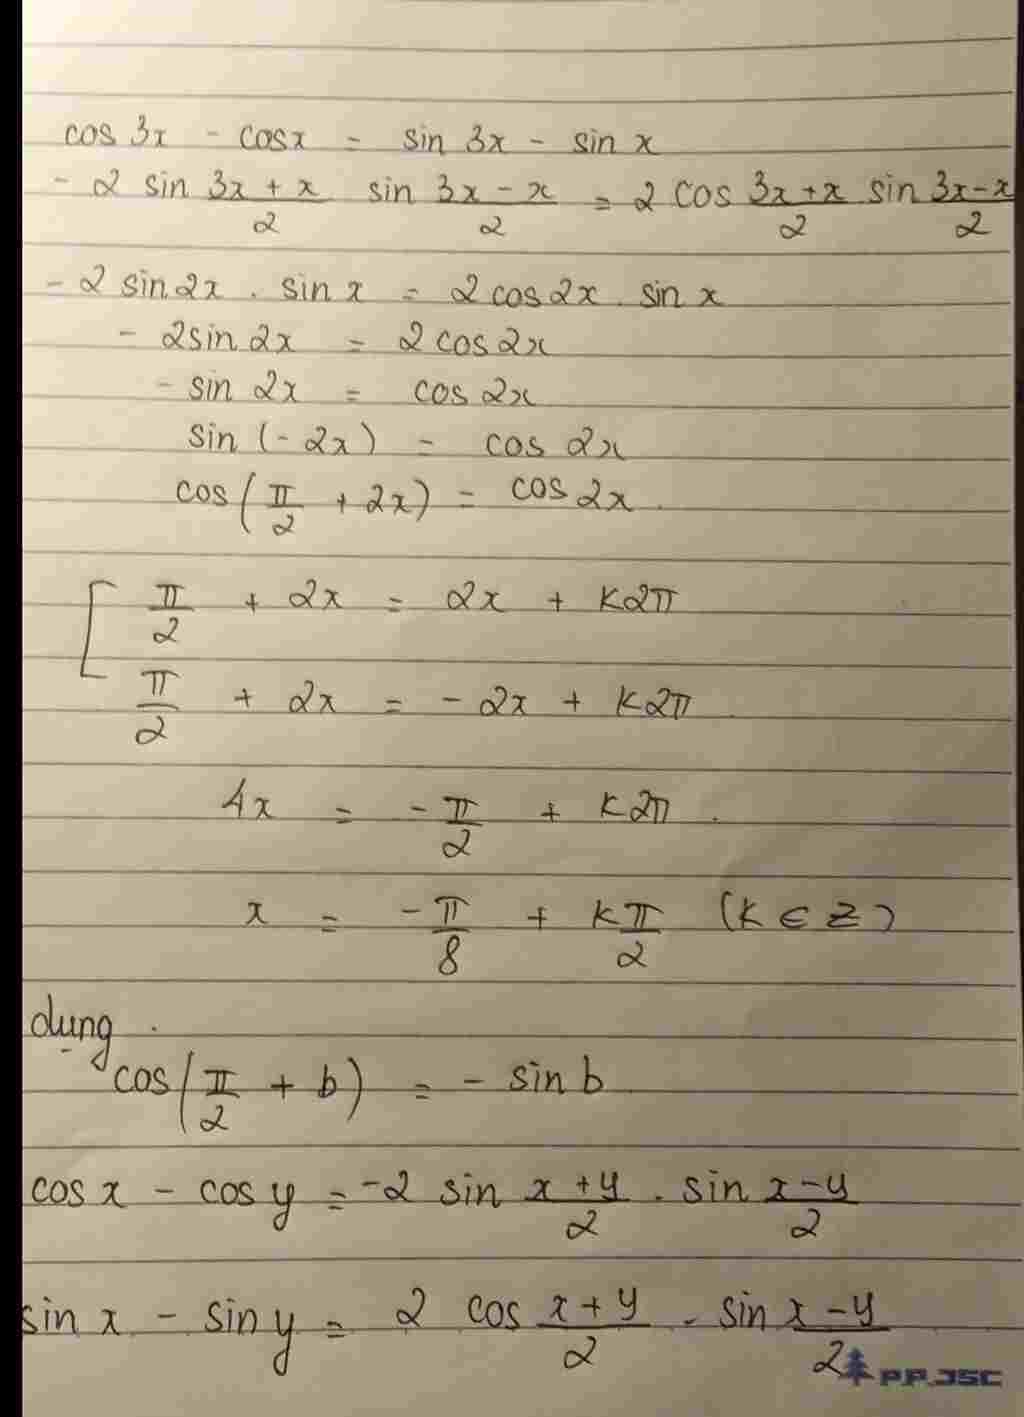 cos 3x - cosx = sin 3x - sin x
- 2 sin (3x + x)/2 sin (3x - x)/2 = 2 cos (3x + x)/2 sin (3x - x)/2
- 2 sin 2x . sin x = 2 cos 2x . sin x
- 2sin 2x = 2 cos 2x
- sin 2x = cos 2x
sin (- 2x) = cos 2x
cos (π/2 + 2x) = cos 2x .
[ π/2 + 2x = 2x + k2π
π/2 + 2x = - 2x + k2π .
4x = - π/2 + k2π .
x = - π/8 + kπ/2 (k ∈ Z)
dụng .
cos (π/2 + b) = - sin b
cos x - cos y = -2 sin (x + y)/2 . sin (x - y)/2
sin x - sin y = 2 cos (x + y)/2 . sin (x - y)/2
PP.JSC